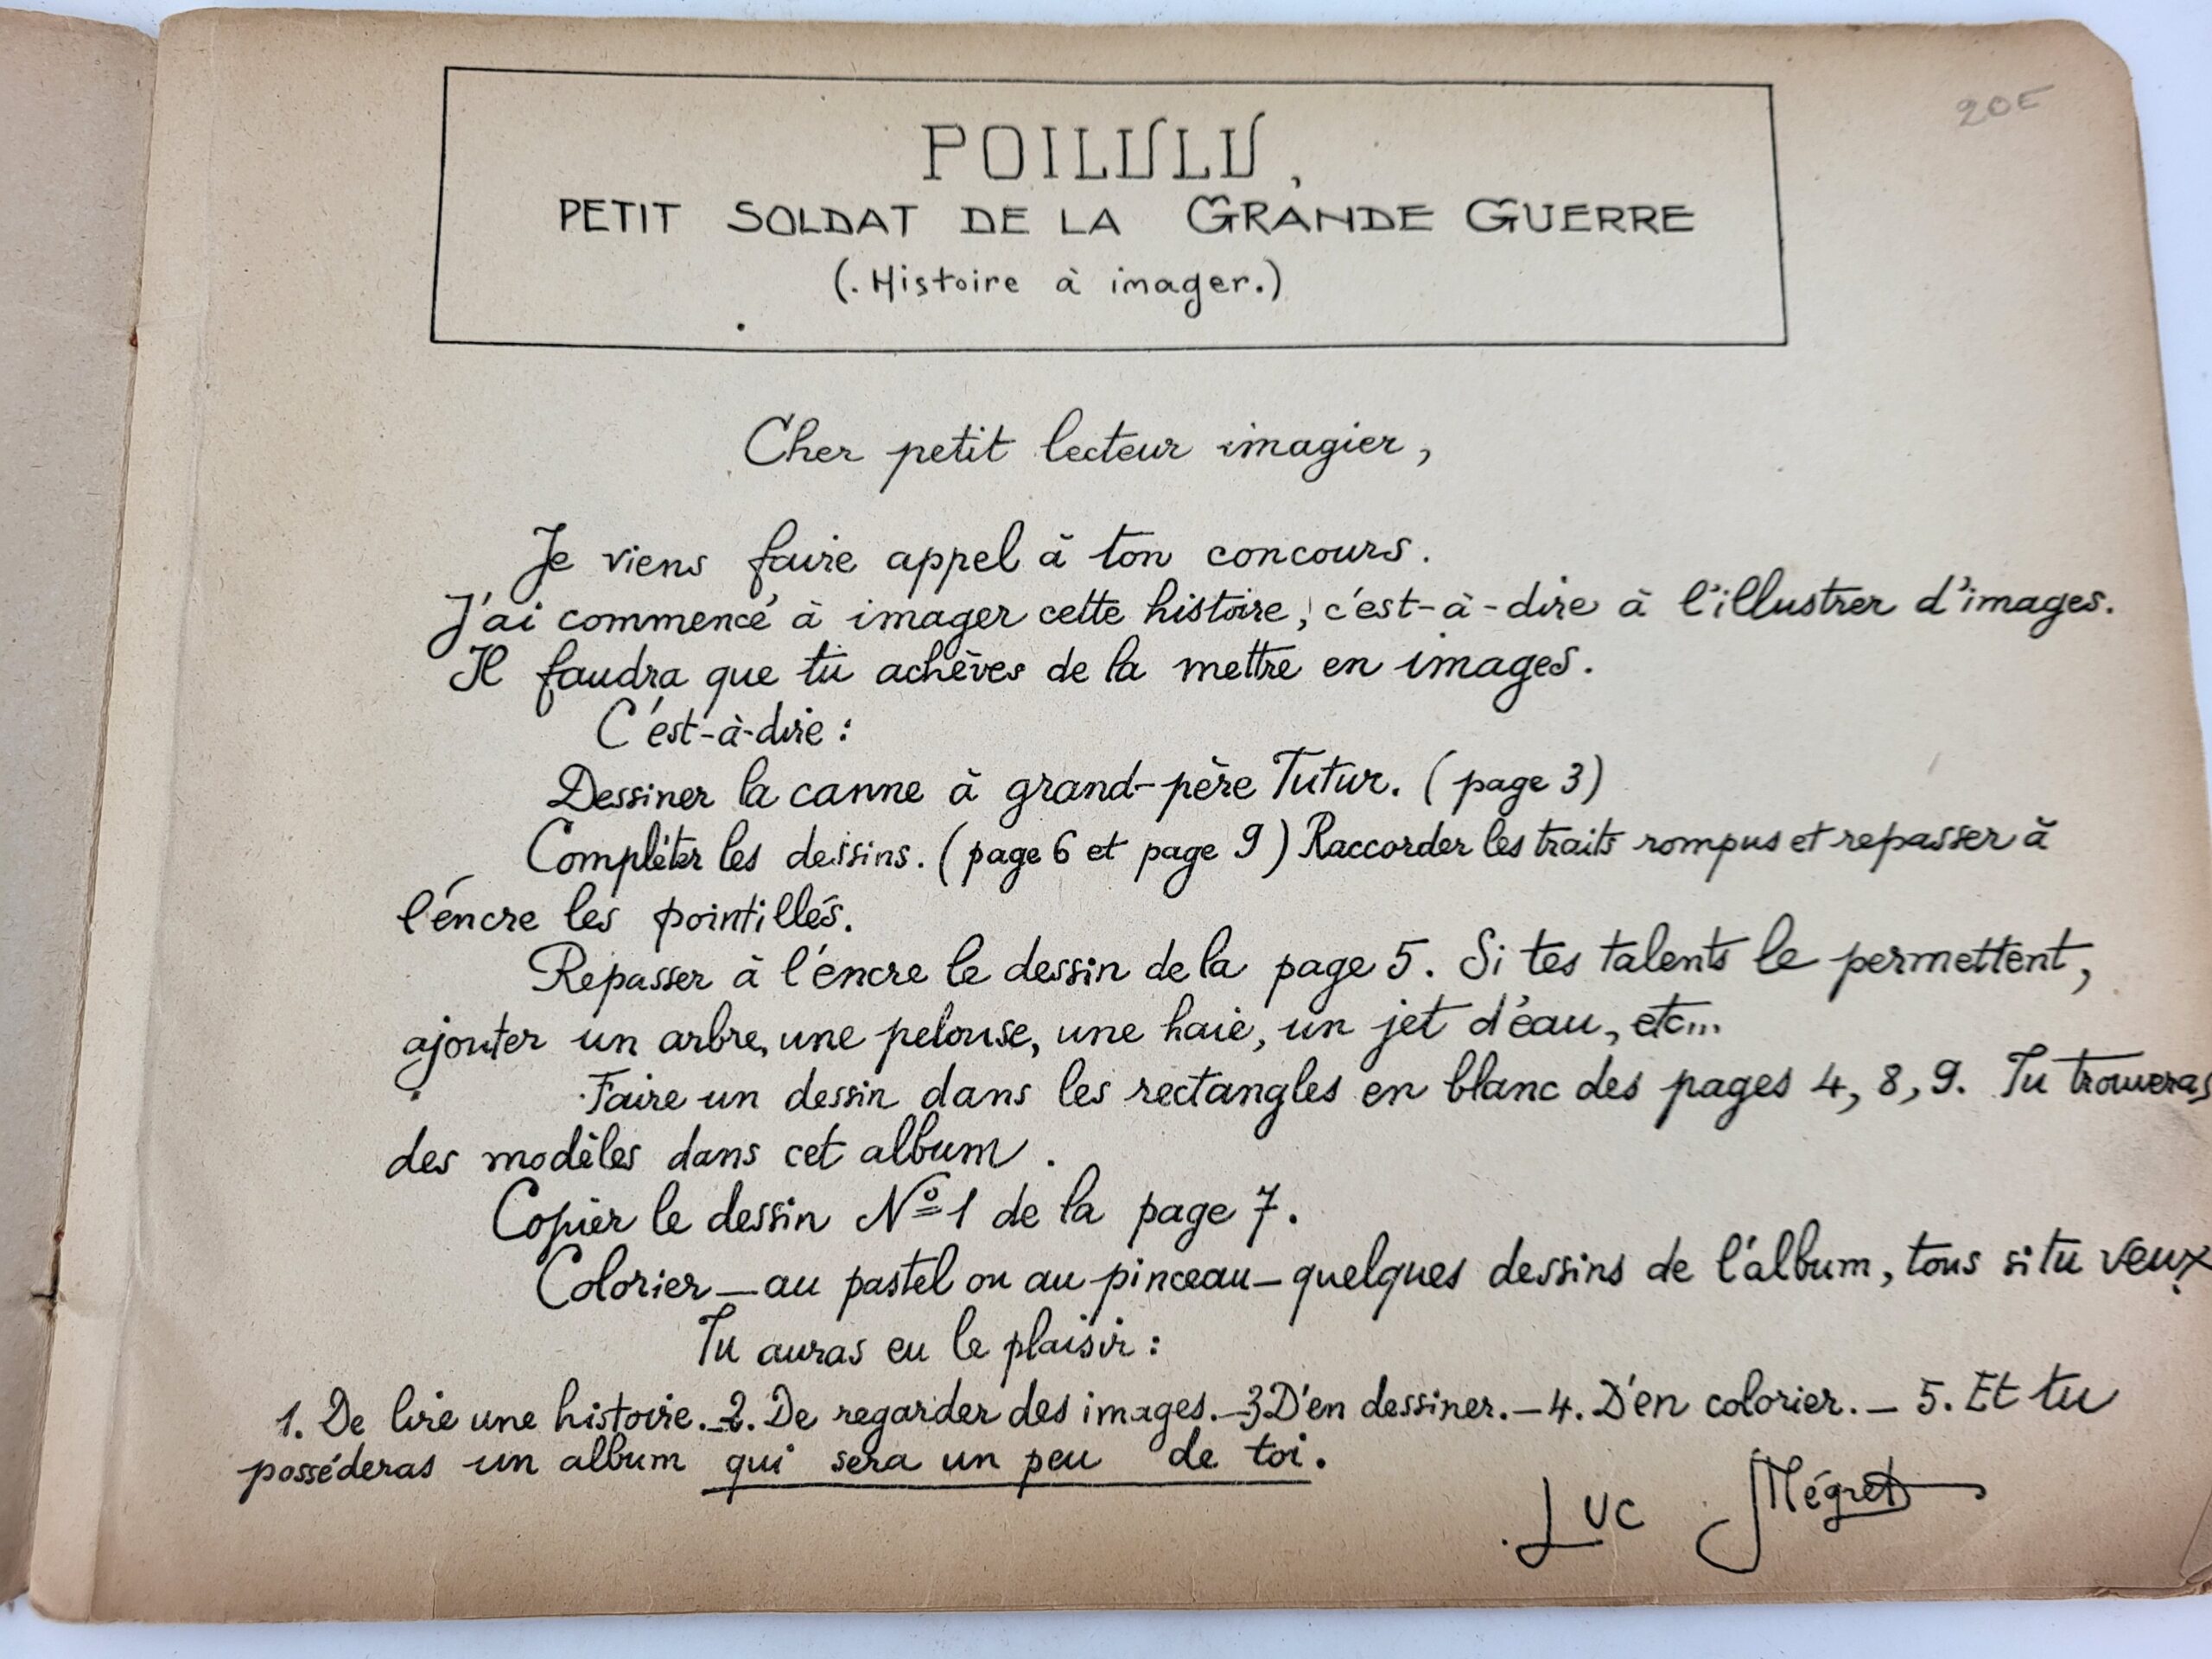 20E
POILULU,
PETIT SOLDAT DE LA GRANDE GUERRE
(. Histoire à imager.)
Cher petit lecteur imagier,
Je viens faire appel à ton concours.
J'ai commencé à imager cette histoire, c'est-à-dire à l'illustrer d'images.
Il faudra que tu achèves de la mettre en images.
C'est-à-dire :
Dessiner la canne à grand-père Tutur. (page 3)
Compléter les dessins. (page 6 et page 9) Raccorder les traits rompus et repasser à
l'encre les pointillés.
Repasser à l'encre le dessin de la page 5. Si tes talents le permettent,
ajouter un arbre, une pelouse, une haie, un jet d'eau, etc...
Faire un dessin dans les rectangles en blanc des pages 4, 8, 9. Tu trouveras
des modèles dans cet album.
Copier le dessin Nº 1 de la page 7.
Colorier _ au pastel ou au pinceau _ quelques dessins de l'album, tous si tu veux.
Tu auras eu le plaisir :
1. De lire une histoire._2. De regarder des images._3 D'en dessiner._4. D'en colorier._ 5. Et tu
posséderas un album qui sera un peu de toi.
Luc Mégret